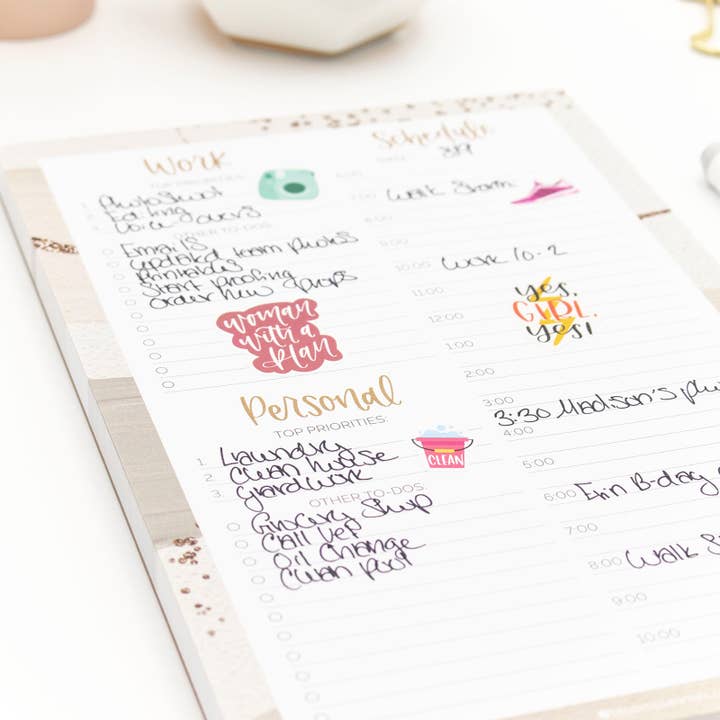 Work
TOP PRIORITIES:
1. Photoshoot
2. Editing
3.
OTHER TO-DOS:
Emails
update team photos
Printables
Start Proofing
order new props
woman
with a
plan
Personal
TOP PRIORITIES:
1. Laundry
2. Clean house
3. yardwork
OTHER TO-DOS:
Grocery Shop
Call Vet
Oil Change
Clean pool
Schedule
DATE: 3/9
6:00
7:00 Walk Storm
8:00
9:00
10:00 Work 10-2
11:00
12:00
1:00
yes,
GIRL,
yes!
2:00
3:00
3:30 Madison's
4:00
CLEAN
5:00
6:00 Erin B-day
7:00
8:00 Walk
9:00
10:00